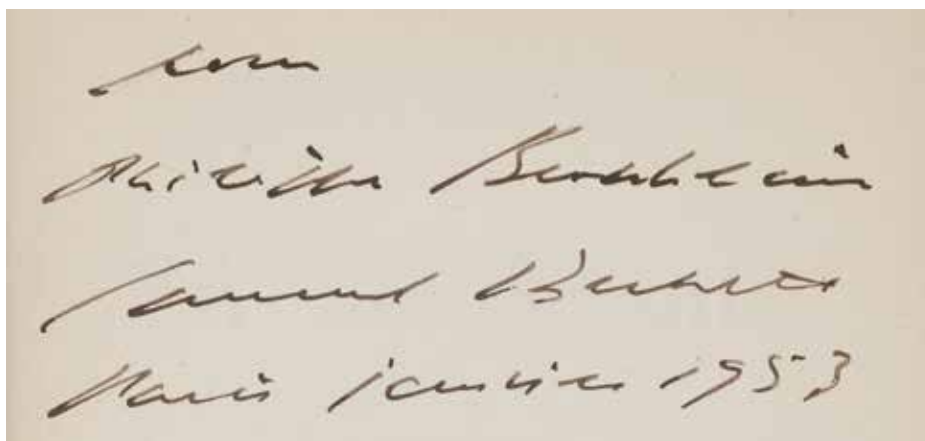 pour
Philippe
Samuel Beckett
Paris janvier 1953